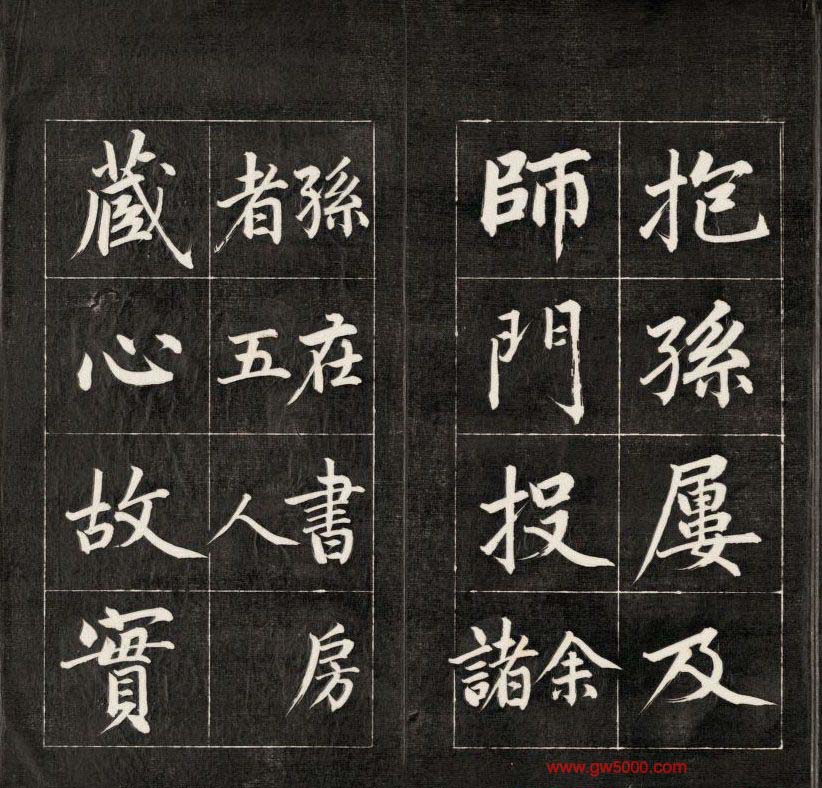 抱孫屢及
師門投余諸
孫在書房
者五人
藏心故實
www.gw5000.com